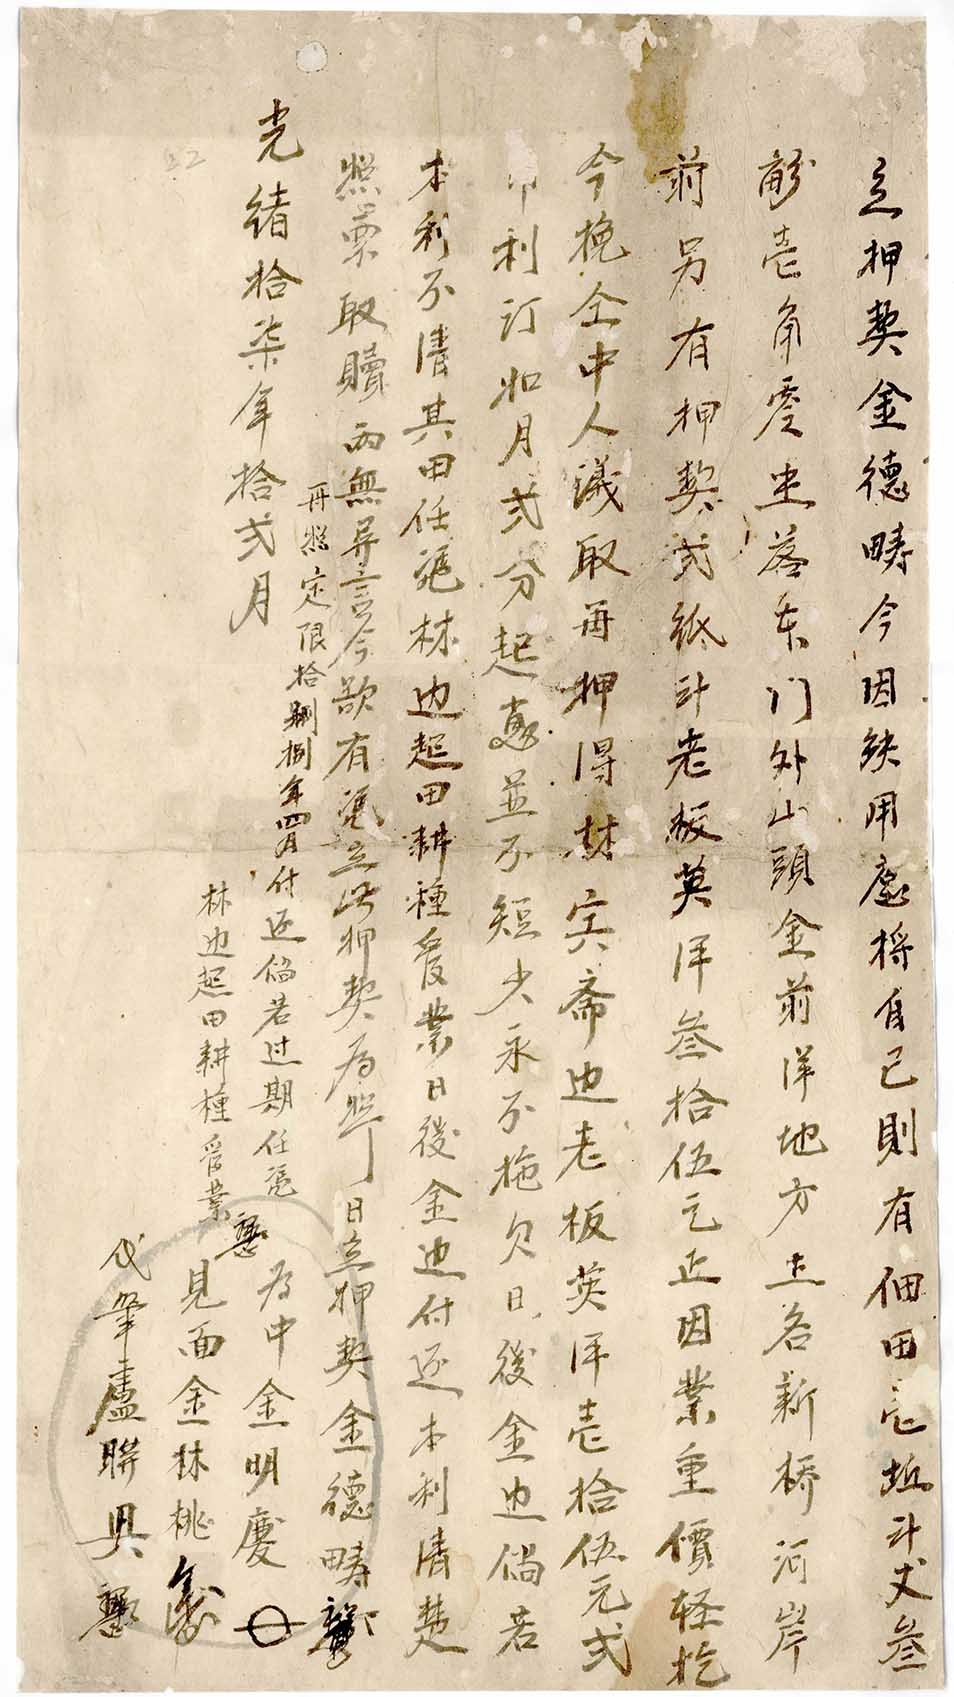 立押契金德疇今因缺用愿将自己則有佃田壱坵計丈叁
畝壱角零坐落东门外山頭金前洋地方土名新桥河岸
前另有押契弍紙計老板英洋叁拾伍元正因業重價轻托
今挽仝中人議取再押得林宾斋边老板英洋壱拾伍元弍
利订如月弍分起息並不短少永不拖欠日後金边倘若
本利不清其田任凭林边起田耕種管業日後金边付还本利清楚
照票取贖两無异言今欲有凭立此押契為照
再照定限拾捌年四月付还倘若过期任凭
林边起田耕種管業
光緒拾柒年拾弍月
日立押契金德疇
為中金明慶
見面金林桃
代筆盧聯興